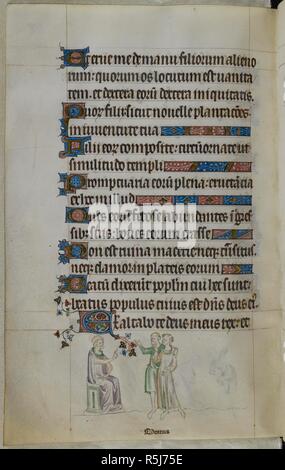 Et erue me de manu filiorum alieno
rum: quorum os locutum est uanita
tem. et dextera eorū dextera iniquitatis.
Quorꝫ filii: sicut nouelle plantacōes
in iuuentute sua
Filie eorꝫ composite: circūornate ut
similitudo templi
Promptuaria eorū plena: eructācia
ex hoc in illud
Oues eorū fetose habundantes
suis: boues eorum crasse
Non est ruina macerie neqꝫ
neqꝫ clamor in plateis eorum
Beatū dixerūt pop̄lm cui hec sunt:
beatus populus cuius est dn̄s deus ei
Exaltabo te deus meus rex: et